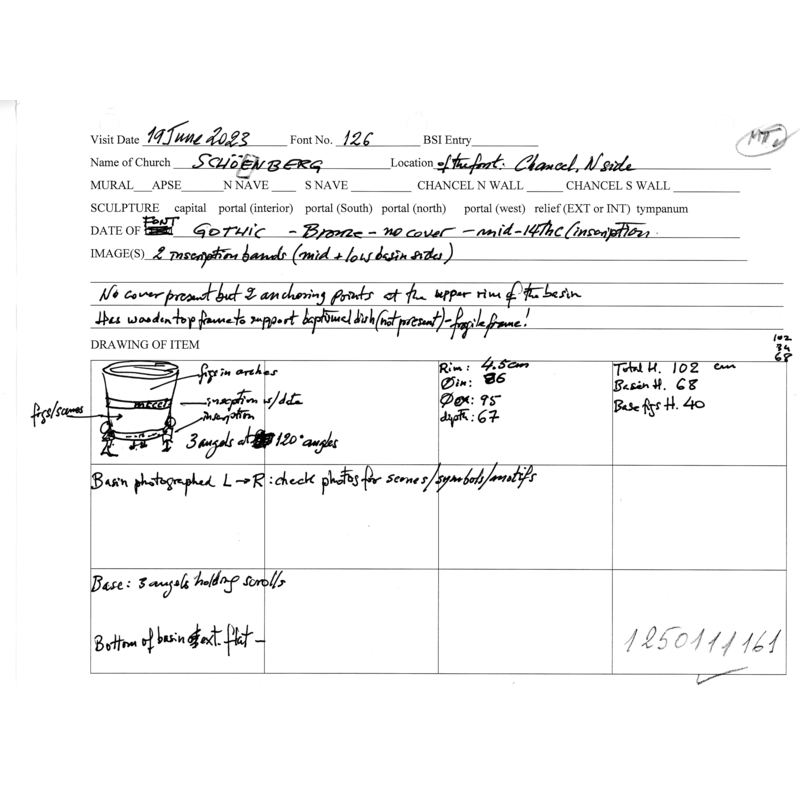 Visit Date 19 June 2023 Font No. 126 BSI Entry
Name of Church SCHÖENBERG Location of the font: Chancel, N side
MURAL APSE N NAVE S NAVE CHANCEL N WALL CHANCEL S WALL
SCULPTURE capital portal (interior) portal (South) portal (north) portal (west) relief (EXT or INT) tympanum
DATE OF FONT GOTHIC - Bronze - no cover - mid-14thc (inscription.
IMAGE(S) 2 inscription bands (mid + low basin sides)
No cover present but 2 anchoring points at the upper rim of the basin
Has wooden top frame to support baptismal dish (not present) - fragile frame!
DRAWING OF ITEM
102
34
68
figs in arches
mccc
inscription w/date
inscription
figs/scenes
3 angels at 120° angles
Rim: 4.5cm
Ø in: 86
Ø ex: 95
dipth: 67
Total H. 102 cm
Basin H. 68
Base figs H. 40
Basin photographed L → R: check photos for scenes/symbols/motifs
Base: 3 angels holding scrolls
Bottom of basin ext. flat -
1250111161